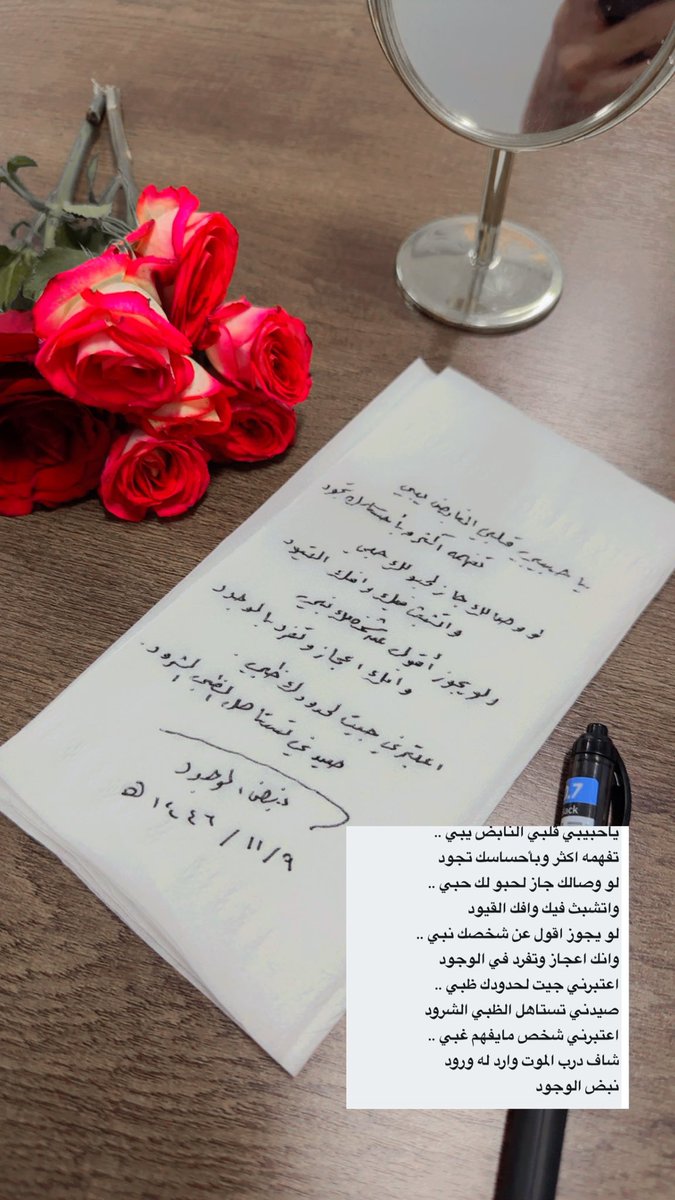 يا حبيبي قلبي النابض يبي
تفهمه أكثر وبأحساسك تجود
لو وصالك جاز لحبو لك حبي
واتشبث فيك وافك القيود
ولو يجوز أقول عن شخصك نبي
وانك اعجاز وتفرد بالوجود
اعتبرني جيت لحدودك ظبي.
صيدني تستاهل الظبي الشرود.
نبض الوجود
١٤٤٦/١١/٩ هـ
0.7
ياحبيبي قلبي النابض يبي ..
تفهمه اكثر وبأحساسك تجود
لو وصالك جاز لحبو لك حبي ..
واتشبث فيك وافك القيود
لو يجوز اقول عن شخصك نبي ..
وانك اعجاز وتفرد في الوجود
اعتبرني جيت لحدودك ظبي ..
صيدني تستاهل الظبي الشرود
اعتبرني شخص مايفهم غبي ..
شاف درب الموت وارد له ورود
نبض الوجود